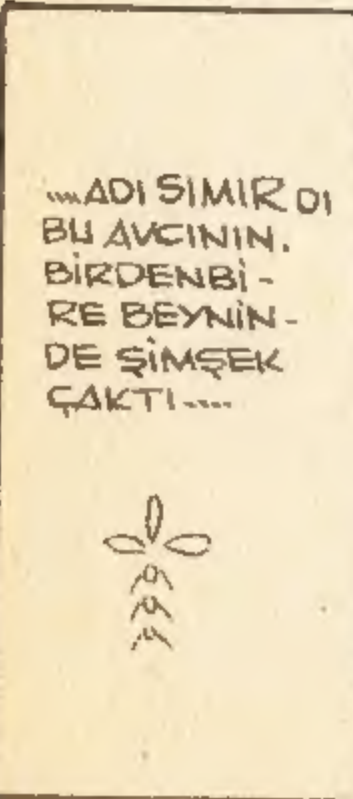 ....ADI SIMIR DI
BU AVCININ.
BİRDENBİ-
RE BEYNİN-
DE ŞİMŞEK
ÇAKTI....